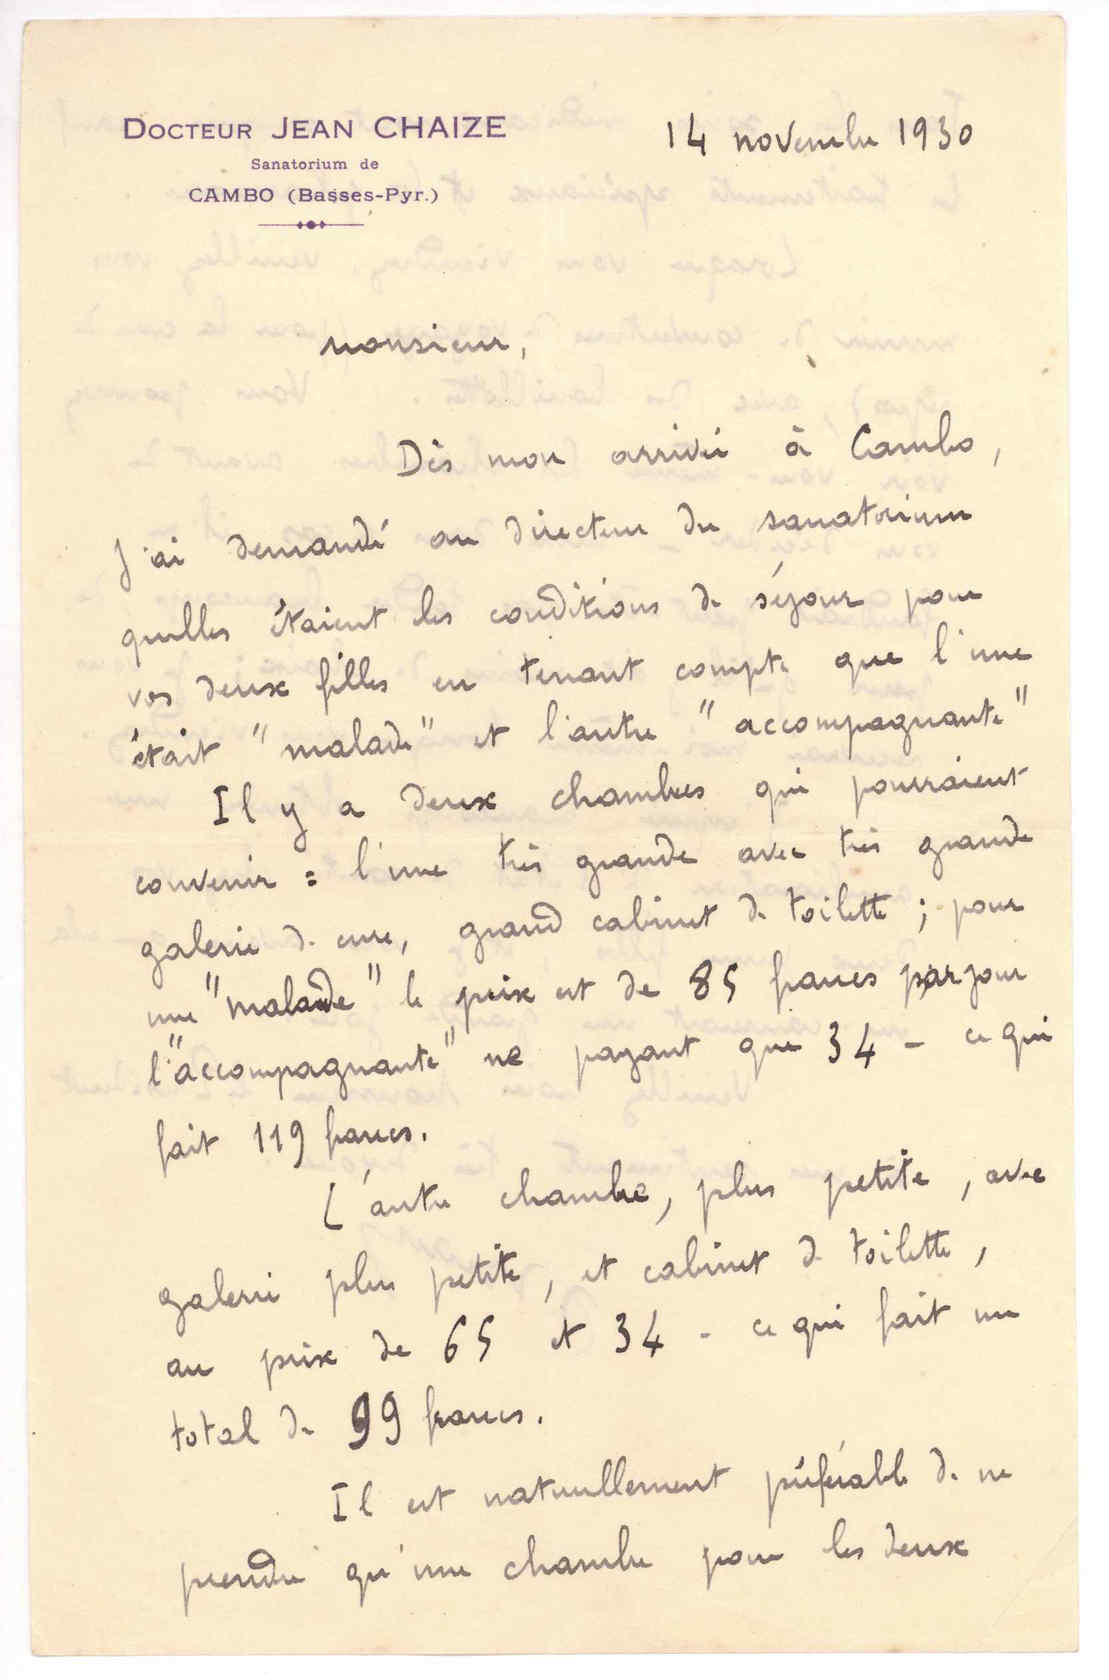 DOCTEUR JEAN CHAIZE
Sanatorium de
CAMBO (Basses-Pyr.)
14 novembre 1930
Monsieur,
Dès mon arrivée à Cambo,
j'ai demandé au directeur du sanatorium
quelles étaient les conditions de séjour pour
vos deux filles en tenant compte que l'une
était "malade" et l'autre "accompagnante"
Il y a deux chambres qui pourraient
convenir : l'une très grande avec très grande
galerie de cure, grand cabinet de toilette ; pour
une "malade" le prix est de 85 francs par jour
l'"accompagnante" ne payant que 34 - ce qui
fait 119 francs.
L'autre chambre, plus petite, avec
galerie plus petite, et cabinet de toilette,
au prix de 65 et 34 - ce qui fait un
total de 99 francs.
Il est naturellement préférable de ne
prendre qu'une chambre pour les deux